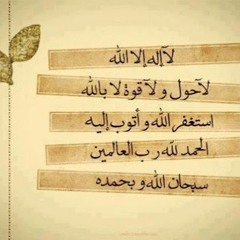 لا إله إلا الله
لا حول ولا قوة لا بالله
استغفر الله وأتوب إليه
الحمد لله رب العالمين
سبحان الله وبحمده